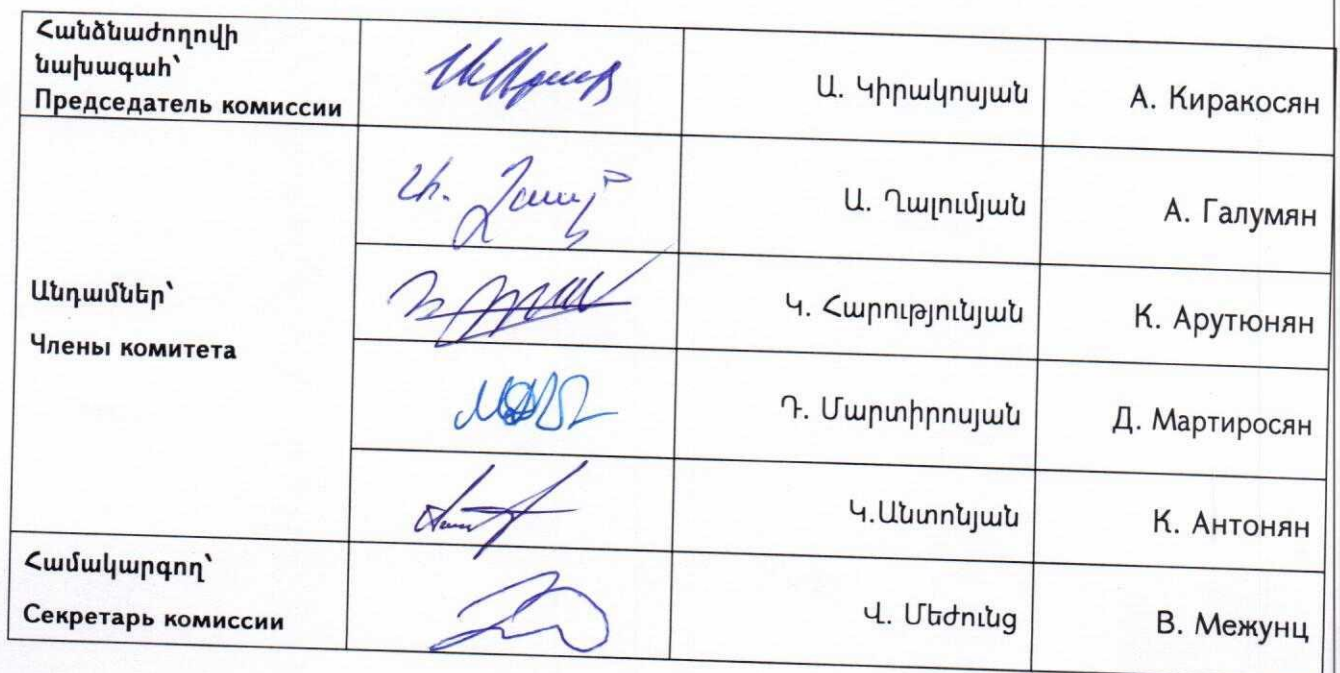 Հանձնաժողովի
նախագահ՝
Председатель комиссии
Ա. Կիրակոսյան
А. Киракосян
Ա. Ղալումյան
А. Галумян
Անդամներ՝
Члены комитета
Կ. Հարությունյան
К. Арутюнян
Դ. Մարտիրոսյան
Д. Мартиросян
Կ.Անտոնյան
К. Антонян
Համակարգող՝
Секретарь комиссии
Վ. Մեժունց
В. Межунц